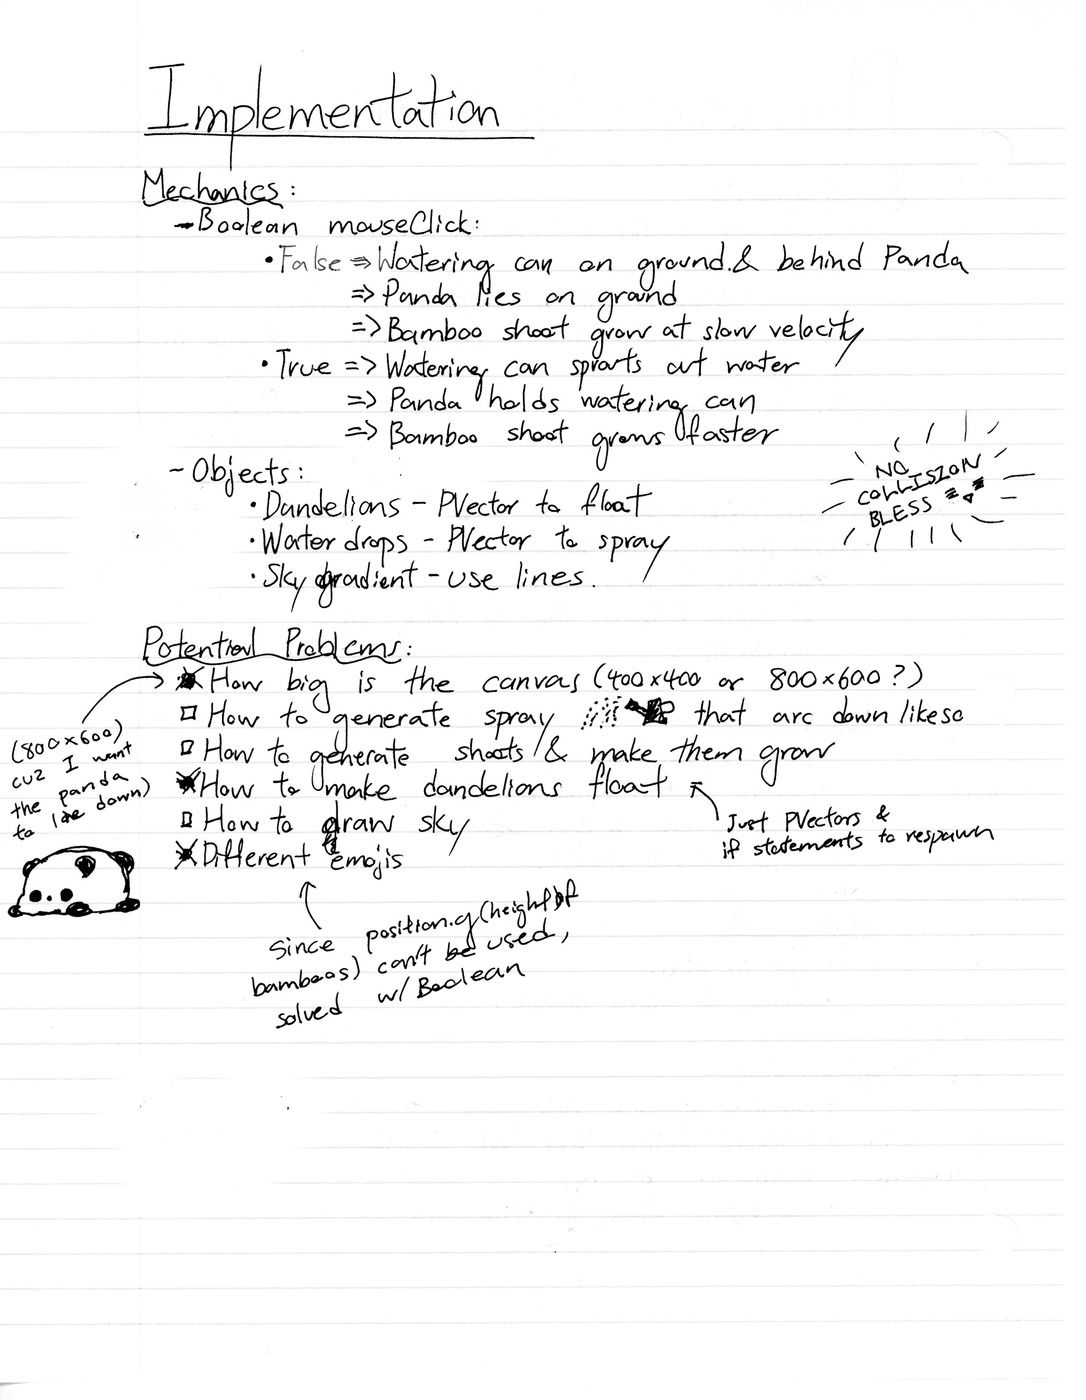 Implementation
Mechanics:
- Boolean mouseClick:
• False => Watering can on ground & behind Panda
=> Panda lies on ground
=> Bamboo shoot grow at slow velocity
• True => Watering can sprouts out water
=> Panda holds watering can
=> Bamboo shoot grows faster
- Objects:
• Dandelions - PVector to float
• Water drops - PVector to spray
• Sky gradient - use lines.
NO
COLLISION
BLESS
Potential Problems:
How big is the canvas (400x400 or 800x600?)
How to generate spray that arc down likeso
How to generate shoots & make them grow
How to make dandelions float
How to draw sky
Different emojis
(800x600)
cuz I want
the panda
to lie down)
Just PVectors &
if statements to respawn
Since position.y (height of
bamboos) can't be used,
solved w/ Boolean